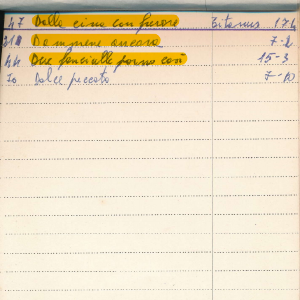 47 Dalle cime con furore Bitonus 174
210 Dammene ancora 7-2
44 Due fanciulle fanno così 15-3
70 Dolce peccato 7-10